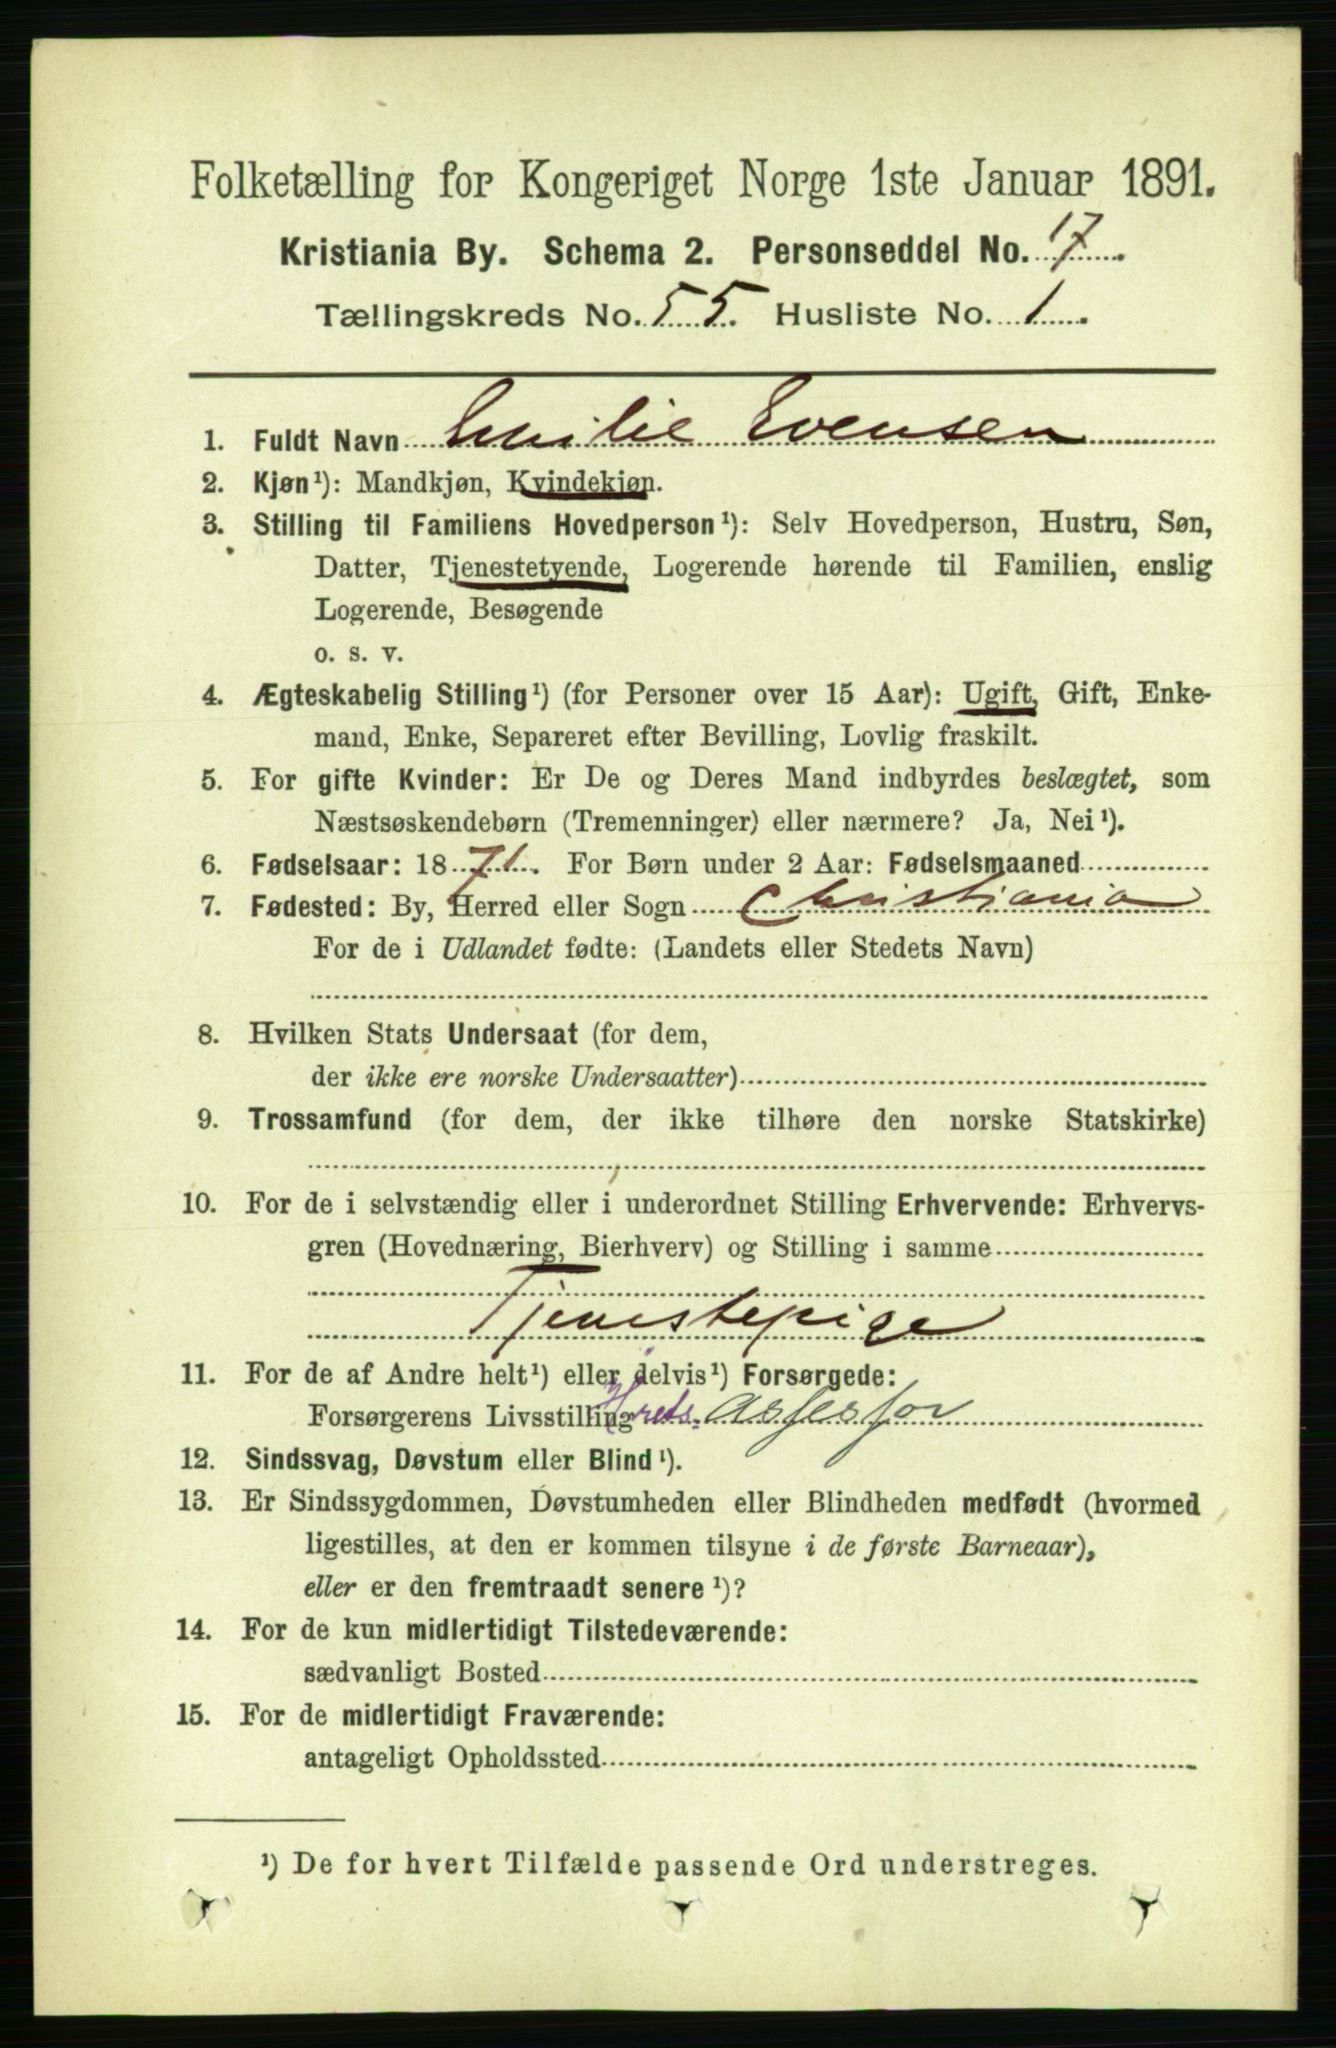 Folketælling for Kongeriget Norge 1ste Januar 1891.
Kristiania By. Schema 2. Personseddel No. 17
Tællingskreds No. 55. Husliste No. 1.
1. Fuldt Navn Emilie Evensen
2. Kjøn¹): Mandkjøn, Kvindekjøn.
3. Stilling til Familiens Hovedperson¹): Selv Hovedperson, Hustru, Søn,
Datter, Tjenestetyende, Logerende hørende til Familien, enslig
Logerende, Besøgende
o. s. v.
4. Ægteskabelig Stilling¹) (for Personer over 15 Aar): Ugift, Gift, Enke-
mand, Enke, Separeret efter Bevilling, Lovlig fraskilt.
5. For gifte Kvinder: Er De og Deres Mand indbyrdes beslægtet, som
Næstsøskendebørn (Tremenninger) eller nærmere? Ja, Nei¹).
6. Fødselsaar: 1871. For Børn under 2 Aar: Fødselsmaaned
7. Fødested: By, Herred eller Sogn Christiania
For de i Udlandet fødte: (Landets eller Stedets Navn)
8. Hvilken Stats Undersaat (for dem,
der ikke ere norske Undersaatter)
9. Trossamfund (for dem, der ikke tilhøre den norske Statskirke)
10. For de i selvstændig eller i underordnet Stilling Erhvervende: Erhvervs-
gren (Hovednæring, Bierhverv) og Stilling i samme
Tjenestepige
11. For de af Andre helt¹) eller delvis¹) Forsørgede:
Forsørgerens Livsstilling Hrets. Assessor
12. Sindssvag, Døvstum eller Blind¹).
13. Er Sindssygdommen, Døvstumheden eller Blindheden medfødt (hvormed
ligestilles, at den er kommen tilsyne i de første Barneaar),
eller er den fremtraadt senere¹)?
14. For de kun midlertidigt Tilstedeværende:
sædvanligt Bosted
15. For de midlertidigt Fraværende:
antageligt Opholdssted
¹) De for hvert Tilfælde passende Ord understreges.